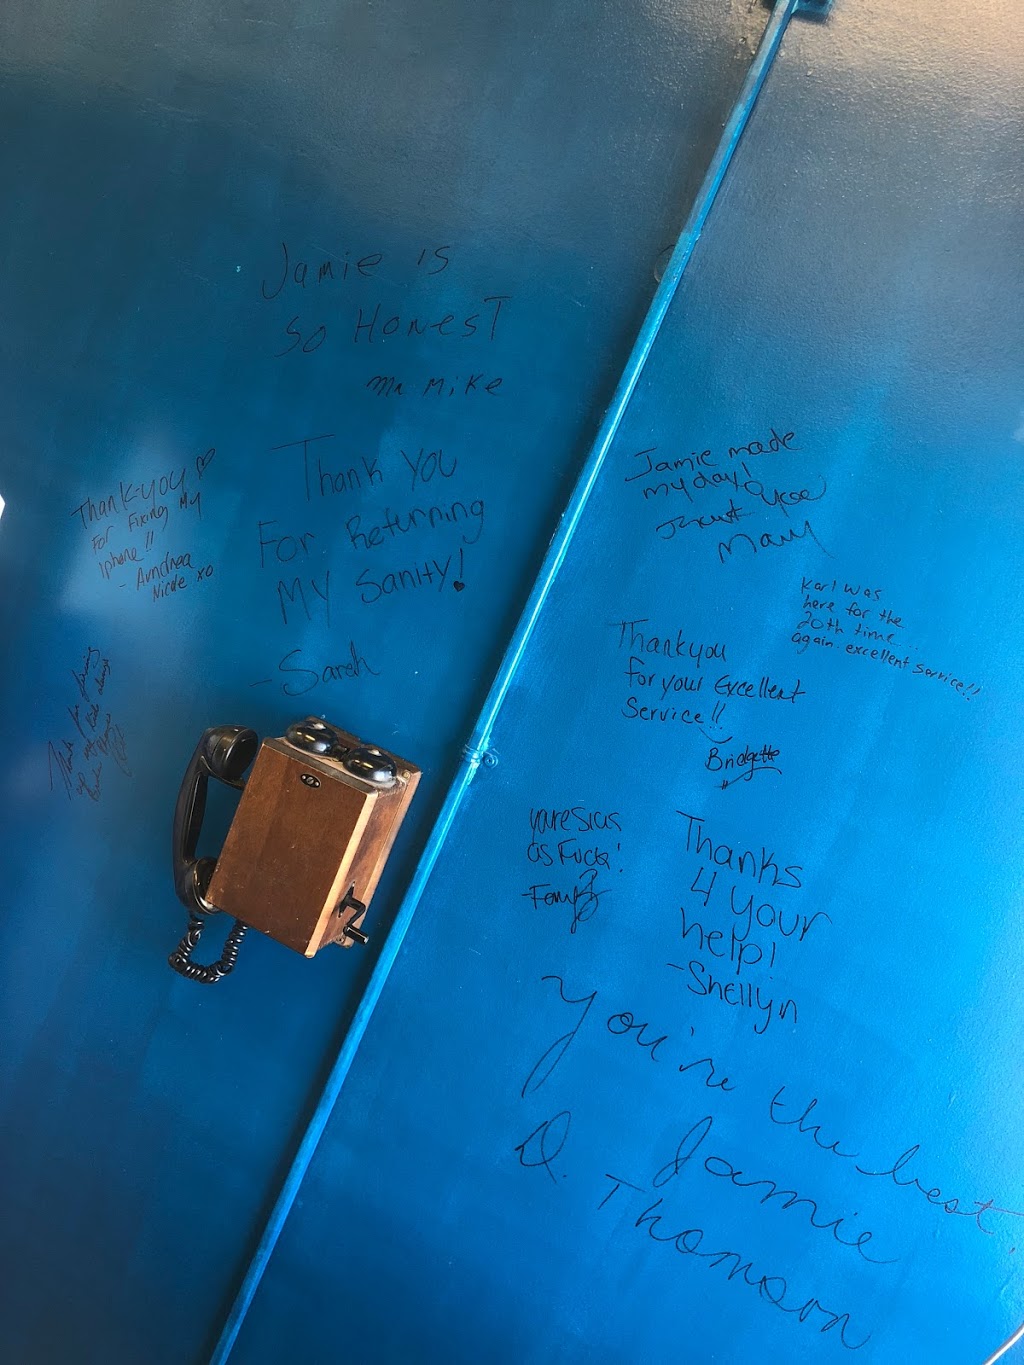 Jamie is
so Honest
Mr Mike
Thank you
For Returning
My Sanity!
-Sarah
Thank-you
For Fixing My
Iphone!!
- Arndrea
Nicole xo
Jamie made
my day!
Karl was
here for the
20th time...
again. excellent service!!
Thankyou
for your Excellent
Service!!
Bridgette
as Fuck!
Thanks
4 your
help!
-Shellyn
You're the best,
Jamie
D. Thomson